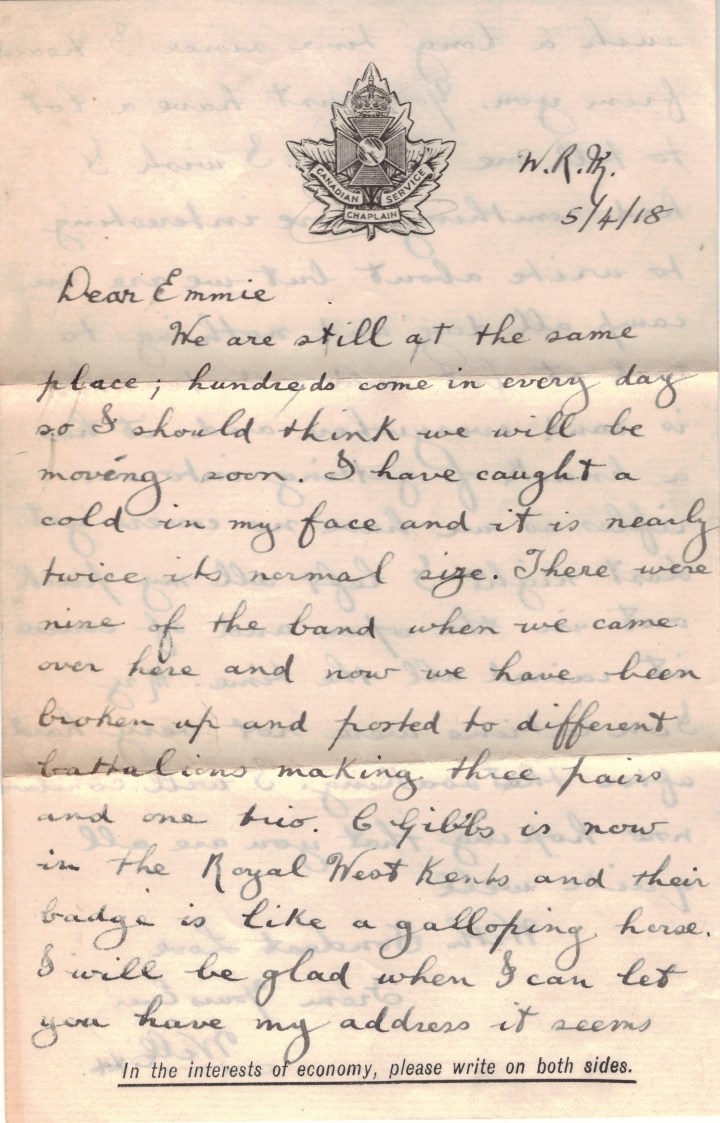 CANADIAN CHAPLAIN SERVICE
W.R.K.
5/4/18
Dear Emmie
We are still at the same
place; hundreds come in every day
so I should think we will be
moving soon. I have caught a
cold in my face and it is nearly
twice its normal size. There were
nine of the band when we came
over here and now we have been
broken up and posted to different
battalions making three pairs
and one trio. C Gibbs is now
in the Royal West Kents and their
badge is like a galloping horse.
I will be glad when I can let
you have my address it seems
In the interests of economy, please write on both sides.